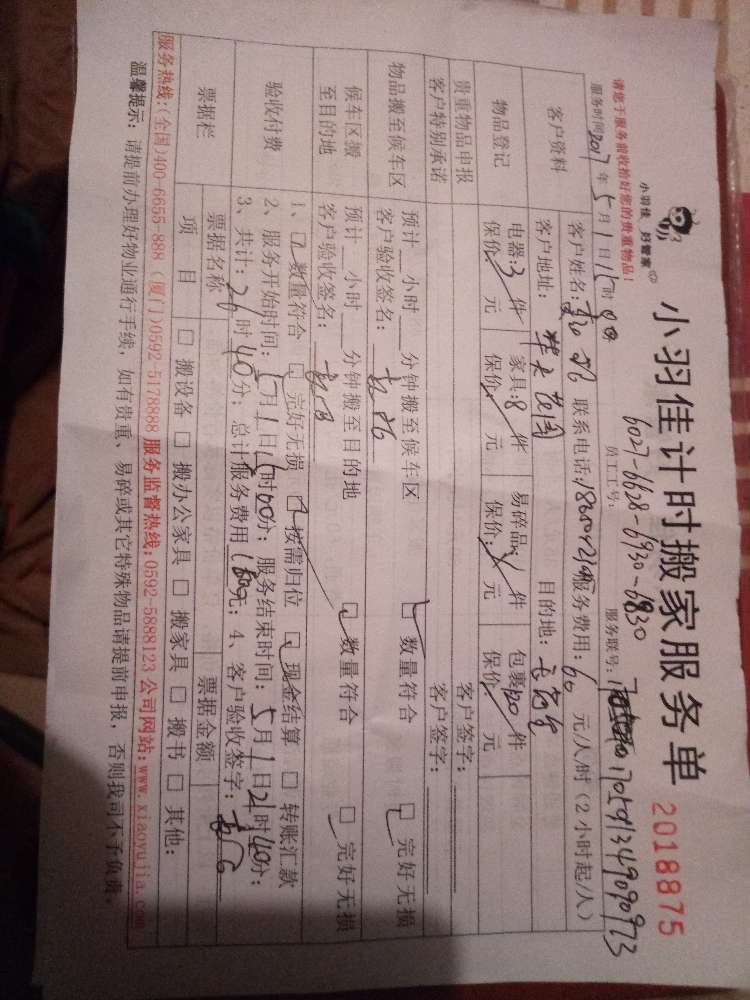 小羽佳 好管家
小羽佳计时搬家服务单
2018875
请您于服务前收拾好您的贵重物品!
6027-6628-6930-6830
服务时间:2017年5月1日15时00
员工工号:
服务联号:
客户资料
客户姓名: 联系电话: 服务费用:60元/人/时(2小时起/人)
客户地址: 目的地:
物品登记
电器:3件 家具:8件 易碎品: 件 包裹 件
保价: 元 保价: 元 保价: 元 保价: 元
贵重物品申报 客户签字:
客户特别承诺 客户签字:
物品搬至候车区
预计__小时__分钟搬至候车区 □数量符合 □完好无损
客户验收签名:
候车区搬至目的地
预计__小时__分钟搬至目的地 □数量符合 □完好无损
客户验收签名:
验收付费
1、□数量符合 □完好无损 □按需归位 □现金结算 □转账汇款
2、服务开始时间:5月1日15时00分;服务结束时间:5月1日21时40分;
3、共计:26时40分;总计服务费用1600元;4、客户验收签字:
票据栏
票据名称 票据金额
项目 □搬设备 □搬办公家具 □搬家具 □搬书 □其他:
服务热线:(全国)400-6655-888(厦门)0592-5178888 服务监督热线:0592-5888123 公司网站:www.xiaoyujia.com
温馨提示:请提前办理好物业通行手续,如有贵重、易碎或其它特殊物品请提前申报,否则我司不予负责。